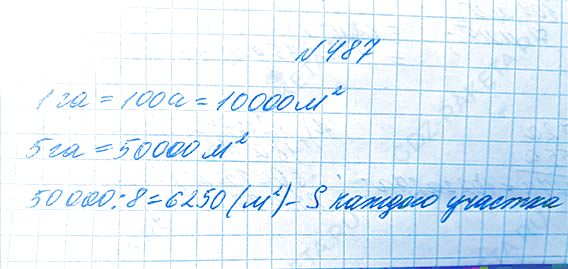 № 487
1 га = 100а = 10000 м²
5 га = 50000 м²
50000:8=6250 (м²)- S каждого участка